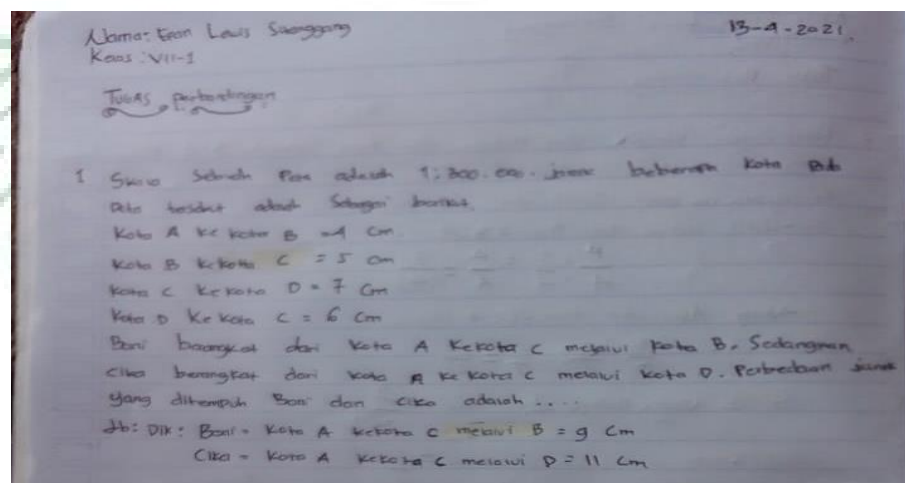 Nama: Eean Lewis Saenggang
13-4-2021.
Kelas : VII-1
Tugas perbandingan
1 Skala Sebuah Peta adalah 1: 300.000. jarak beberapa Kota Pada
Peta tersebut adalah Sebagai berikut.
Kota A Ke kota B = 4 Cm.
Kota B Ke kota C = 5 cm
Kota C Ke kota D = 7 Cm
Kota D Ke kota C = 6 Cm
Boni berangkat dari Kota A Ke kota C melalui kota B. Sedangkan
Cika berangkat dari kota A ke kota C melalui kota D. Perbedaan jarak
yang ditempuh Boni dan Cika adalah ....
Jb: Dik: Boni = Kota A kekota C melalui B = 9 Cm
Cika = Kota A kekota C melalui D = 11 Cm